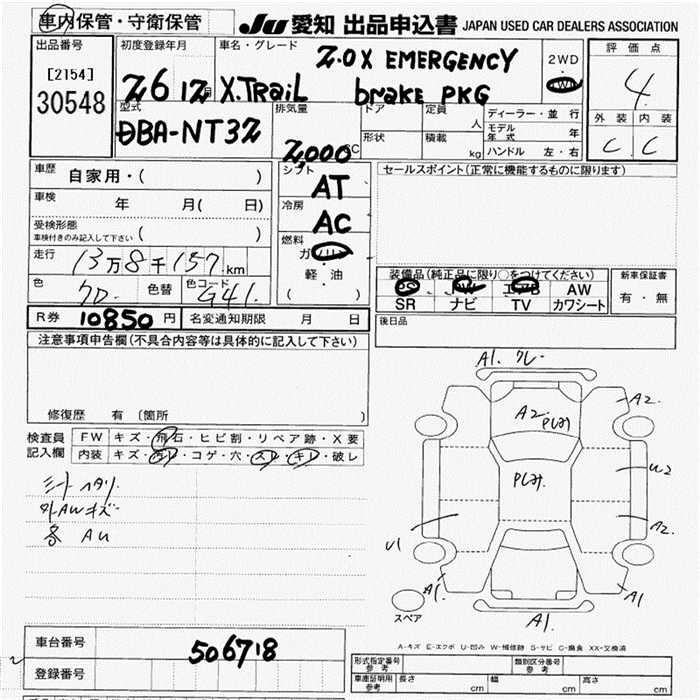 車内保管・守衛保管
JU 愛知 出品申込書 JAPAN USED CAR DEALERS ASSOCIATION
出品番号
[2154]
30548
初度登録年月
26 12月
車名・グレード
X.TRAIL
2.0X EMERGENCY
brake PKG
2WD
4WD
評価点
4
外装 内装
C C
型式
DBA-NT32
排気量
2,000CC
ドア
形状
定員 人
積載 kg
ディーラー・並行
モデル年式 年
ハンドル 左・右
車歴 自家用・( )
車検 年 月( 日)
受検形態
車検付きのみ記入して下さい ( )
走行 13万8千157km
色 クロ. 色替 色コード G41.
シフト
AT
冷房
AC
燃料
ガソリン
・
軽・油
( )
セールスポイント(正常に機能するものに限ります)
装備品(純正品に限り○をつけてください)
PS PW エアB AW
SR ナビ TV カワシート
新車保証書
有・無
R券 10850円 名変通知期限 月 日
後日品
注意事項申告欄(不具合内容等は具体的に記入して下さい)
修復歴 有 [箇所 ]
検査員
記入欄
FW キズ・飛石・ヒビ割・リペア跡・X要
内装 キズ・汚レ・コゲ・穴・スレ・キレ・破レ
シートヘタリ.
外AWキズ
各 AU
A1. クレー
A2.
Pしみ
A2
U2
Pしみ.
A2
U1
A1
A1
A1.
スペア
A-キズ E-エクボ U-凹み W-補修跡 S-サビ C-腐食 XX-交換済
車台番号 506718
登録番号
型式指定番号
参考
類別区分番号
参考
車庫証明用
参考
長さ cm
幅 cm
高さ cm